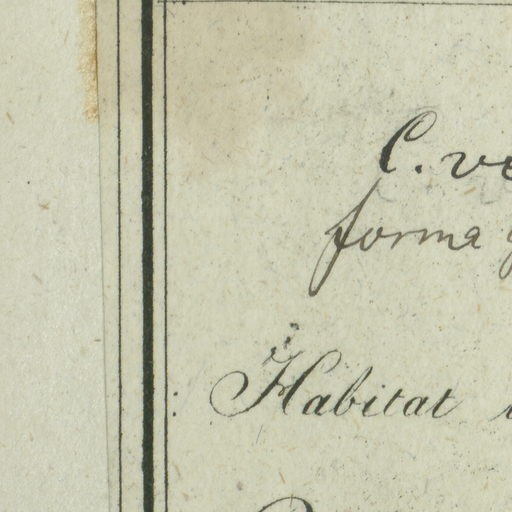 C.
forma
Habitat